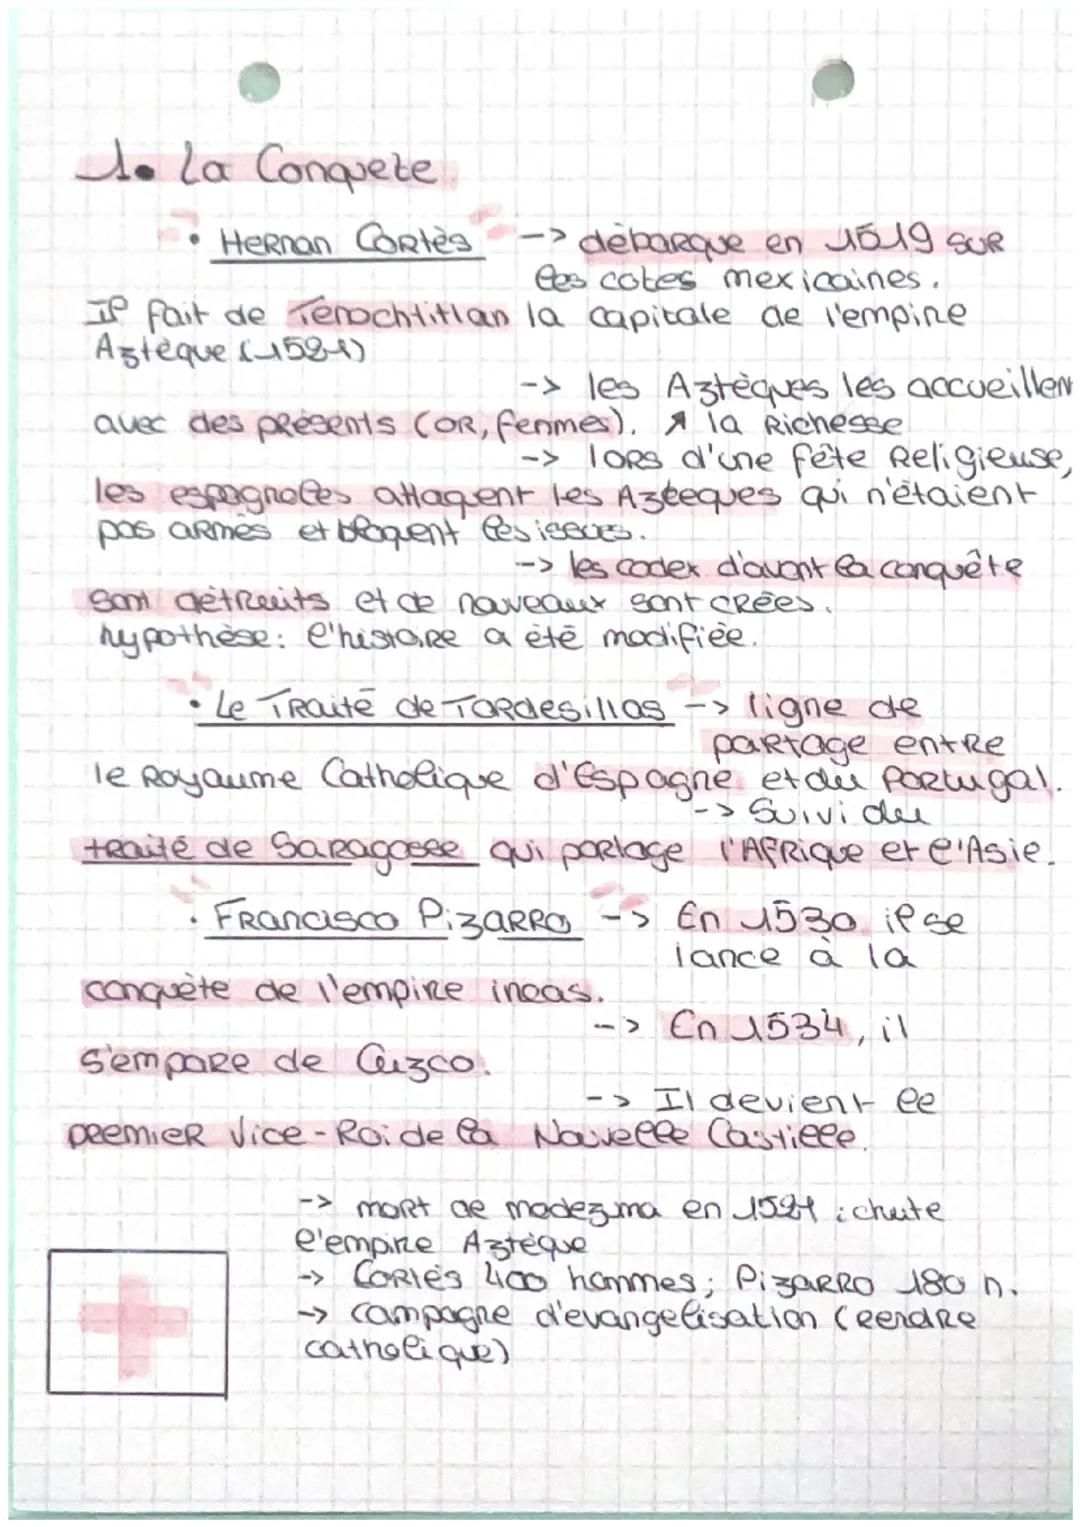 1. La Conquete
• Hernan Cortès -> débarque en 1519 sur
les cotes mexicaines.
Il fait de Tenochtitlan la capitale de l'empire
Aztèque (1521)
-> les Aztèques les accueillen
avec des présents (or, femmes). ↗ la Richesse
-> lors d'une fête Religieuse,
les espagnoles attaquent les Azteques qui n'étaient
pas armés et bloquent les issues.
-> les codex d'avant la conquête
sont détruits et de nouveaux sont crées.
hypothèse: l'histoire a été modifiée.
• Le Traité de Tordesillas -> ligne de
partage entre
le Royaume Catholique d'Espagne et du Portugal.
-> Suivi du
traité de Saragosse qui partage l'Afrique et l'Asie.
• Francisco Pizarro -> En 1530 il se
lance à la
conquête de l'empire incas.
-> En 1534, il
s'empare de Cuzco.
-> Il devient le
premier Vice-Roi de la Nouvelle Castille.
-> mort de modezuma en 1521 ; chute
l'empire Aztèque
-> Cortés 400 hommes; Pizarro 180 h.
-> campagne d'evangelisation (rendre
catholique)